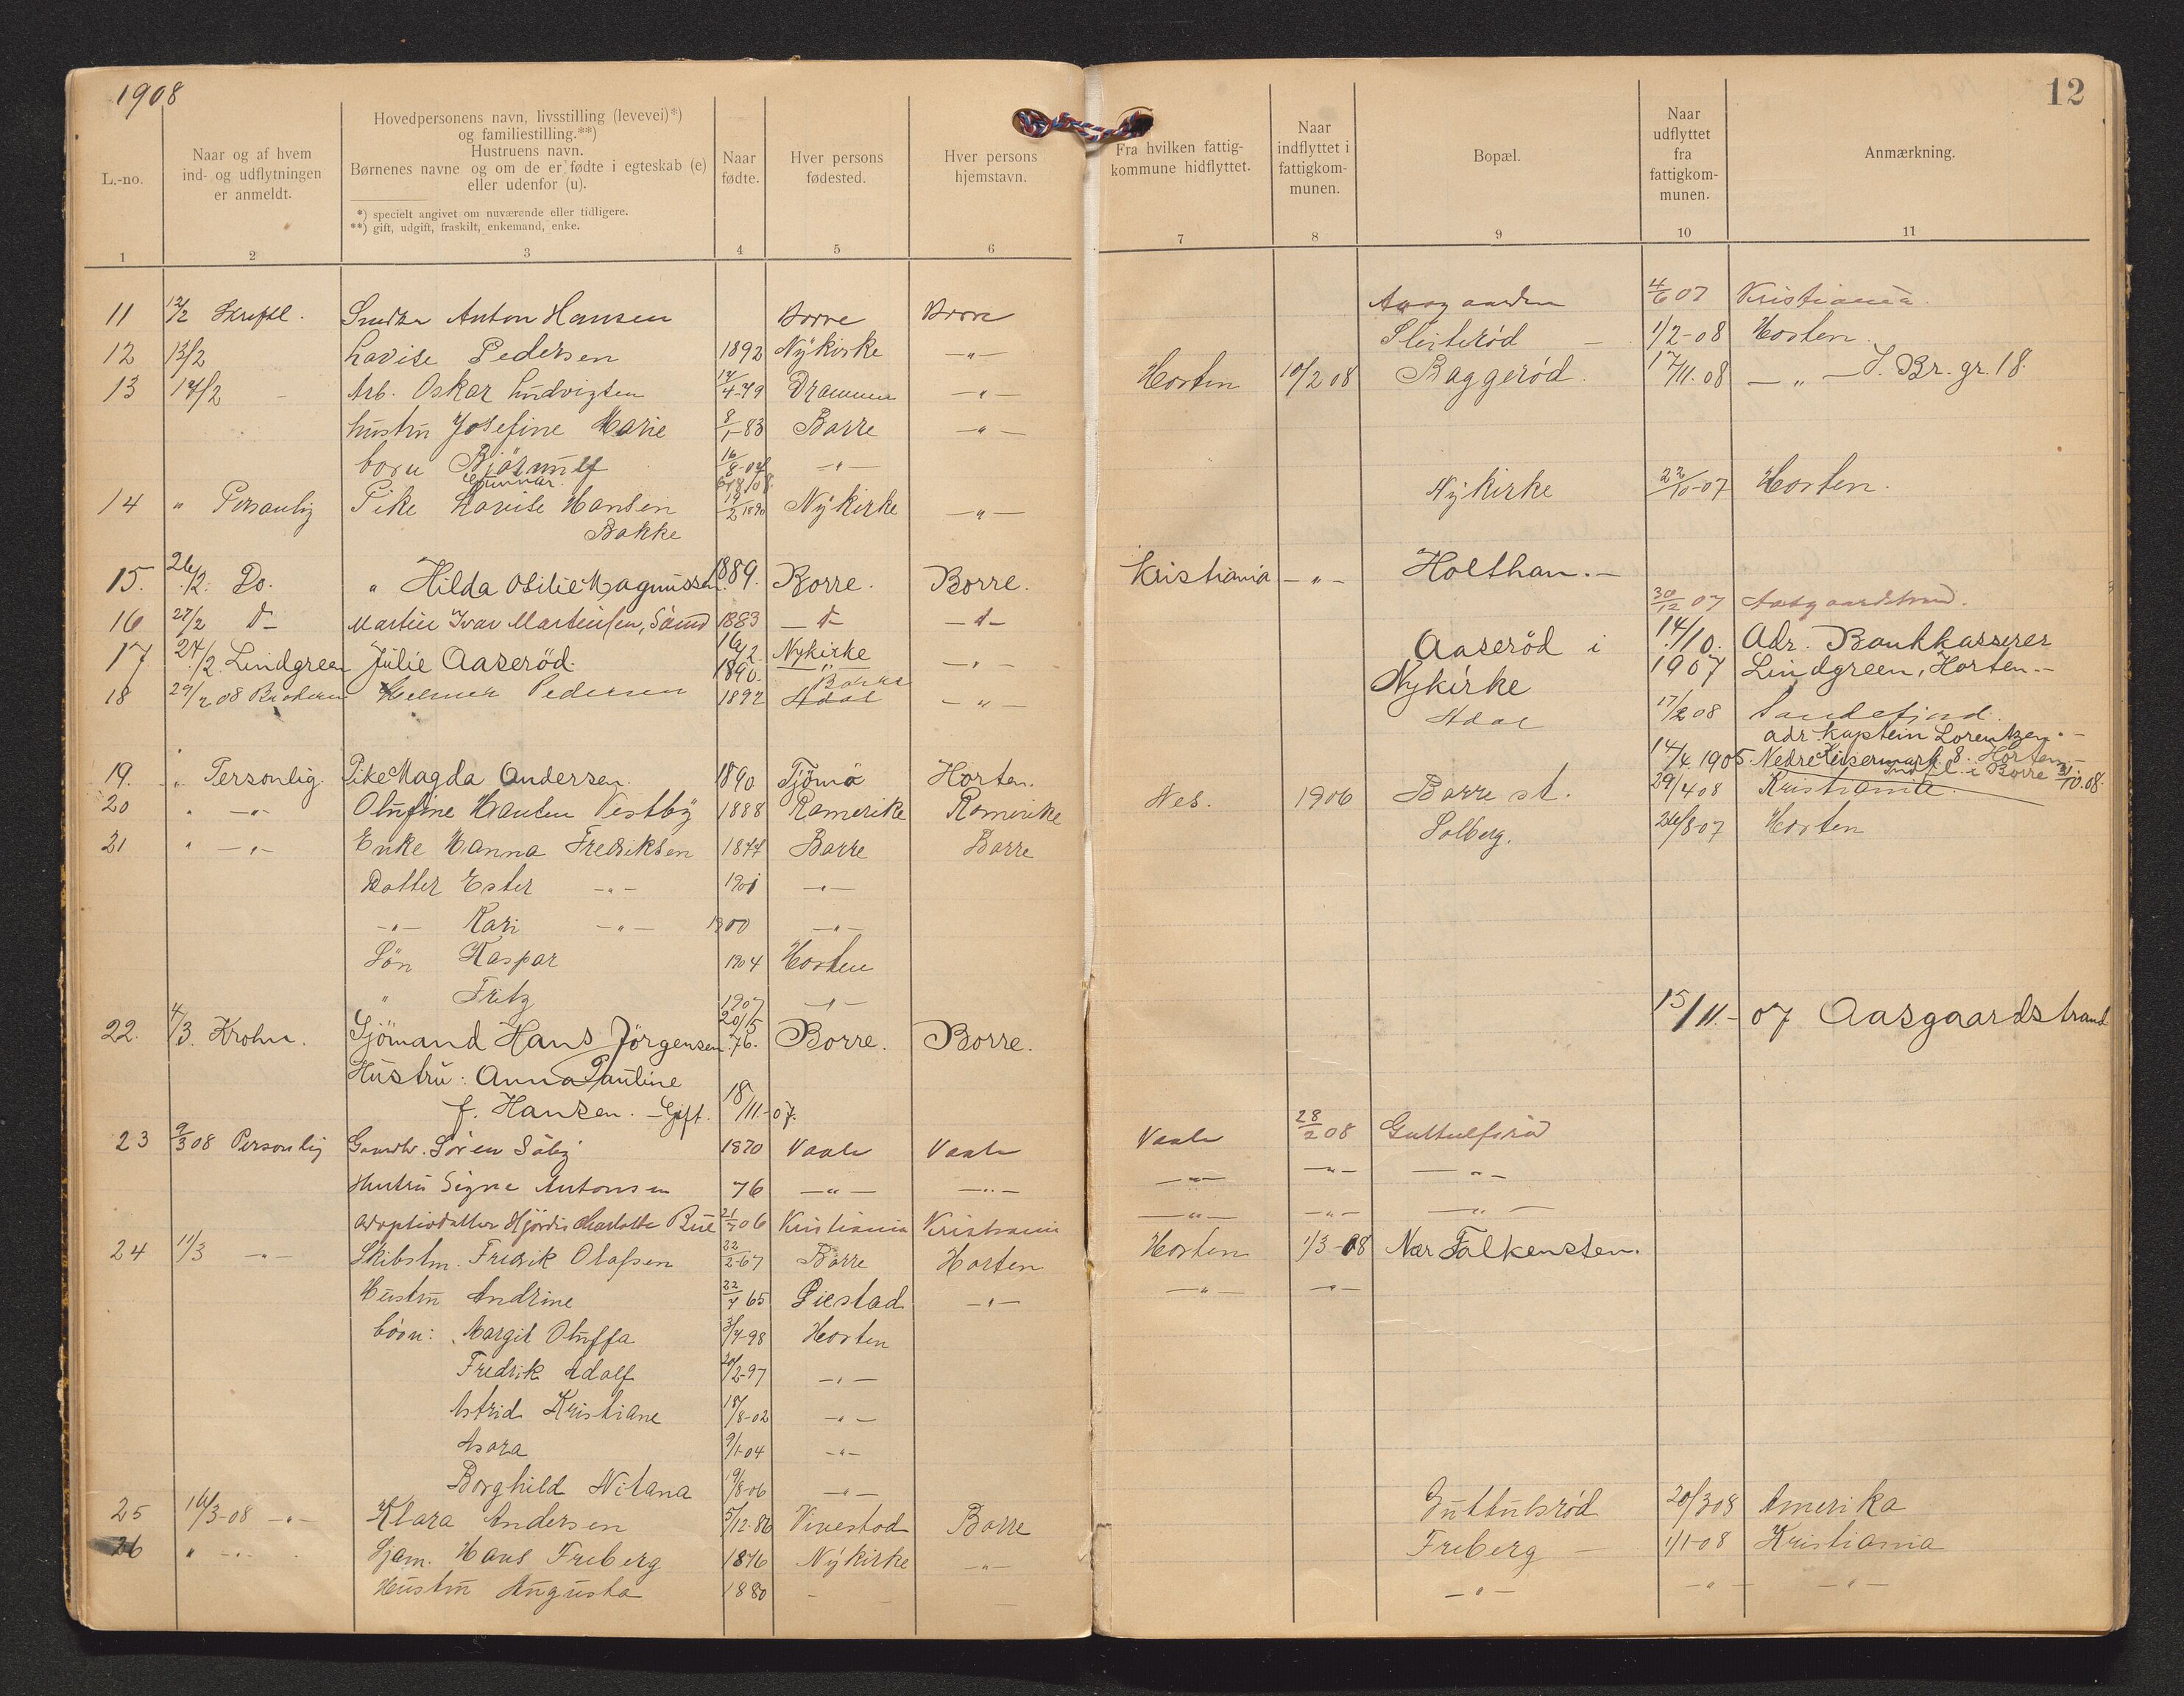 1908
12
L.-no.
Naar og af hvem
ind- og udflytningen
er anmeldt.
Hovedpersonens navn, livsstilling (levevei)*)
og familiestilling.**)
Hustruens navn.
Børnenes navne og om de er fødte i egteskab (e)
eller udenfor (u).
*) specielt angivet om nuværende eller tidligere.
**) gift, udgift, fraskilt, enkemand, enke.
Naar
fødte.
Hver persons
fødested.
Hver persons
hjemstavn.
Fra hvilken fattig-
kommune hidflyttet.
Naar
indflyttet i
fattigkom-
munen.
Bopæl.
Naar
udflyttet
fra
fattigkom-
munen.
Anmærkning.
1 2 3 4 5 6 7 8 9 10 11
11 12/2 Skriftl. Anton Hansen Borre Borre 4/6 07 Kristiania.
12 13/2 Lovise Pedersen 1892 Nykirke -"- Sleiterød 1/2-08 Horten
13 14/2 Arb. Oskar Ludvigsen 14/4-79 Drammen -"- Horten 10/2 08 Baggerød. 17/11.08 -"- S. Br. gr. 18.
hustru Josefine Marie 8/1-83 Borre -"-
born Bjørnulf 16/8-04 -"-
Gunnar. 6/8/08.
14 " Personlig Pike Lovise Hansen 19/2 1890 Nykirke -"- Nykirke 22/10-07 Horten.
Bakke
15. 26/2. Do. " Hilda Otilie Magnussen 1889. Borre. Borre. Kristiania -"- Holthan.-
16 27/2 d- Martin Ivar Martinsen, Sømd 1883 -d- -d- 30/12 07 Aasgaardstrand.
17 24/2. Lindgreen Julie Aaserød. 16/2. 1890. Nykirke -"- Aaserød i Nykirke 14/10. 1907 Adr. Bankkasserer
Lindgreen, Horten.-
18 29/2 08 Broderen Helmer Pedersen 1892 Adal Borre -"- Adal 17/2 08 Sandefjord.
19. " Personlig. Pike Magda Andersen. 1890. Tjømø Horten. 14/4. 1905. adr. Kaptein Lorentzen.-
Nedre Keisermark. 8. Horten.
Indfl. i Borre 31/10.08.
20 " -"- Olufine Hansen Vestby 1888 Romerike Romerike Nes. 1906 Borre st. 29/4 08 Kristiania.
21 " -"- Enke Hanna Fredriksen 1874 Borre Borre Solberg. 26/8-07 Horten
Datter Ester -"- 1901 -"-
-"- Kari -"- 1900 -"-
Søn Kaspar 1904 Horten
" Fritz 1907 -"-
22. 4/3. Krohn. Sjømand Hans Jørgensen 20/5 76. Borre. Borre. 15/11.-07 Aasgaardstrand
Hustru: Anna Pauline
f. Hansen. - Gift. 18/11.-07.
23 9/3 08 Personlig Gaardbr. Søren Søby 1870 Vaale Vaale Vaale 28/2 08
Hustru Signe Antonsen 76 -"- -"- -"- -"- -"-
Adoptivdatter Hjørdis Charlotte Bue 21/7 06 Kristiania Kristiania -"- -"- -"-
24 11/3 -"- Skibstm. Fredrik Olafsen 22/2-67 Borre Horten Horten 1/3-08 Nær Falkensten.
Hustru Andrine 22/4 65 -"- -"- -"-
børn: Margit Oluffa 3/4-98 Horten
Fredrik Adolf 20/2-97 -"-
Astrid Kristiane 18/8-02 -"-
Asora 9/1-04 -"-
Borghild Nitana 19/8-06 -"-
25 16/3-08 -"- Klara Andersen 5/12-86 Vivestad Borre Guttulsrød 20/3 08 Amerika
26 " -"- Sjøm. Hans Freberg 1876 Nykirke -"- Freberg - 1/1-08 Kristiania
Hustru Augusta 1880 - - -"- -"- -"-